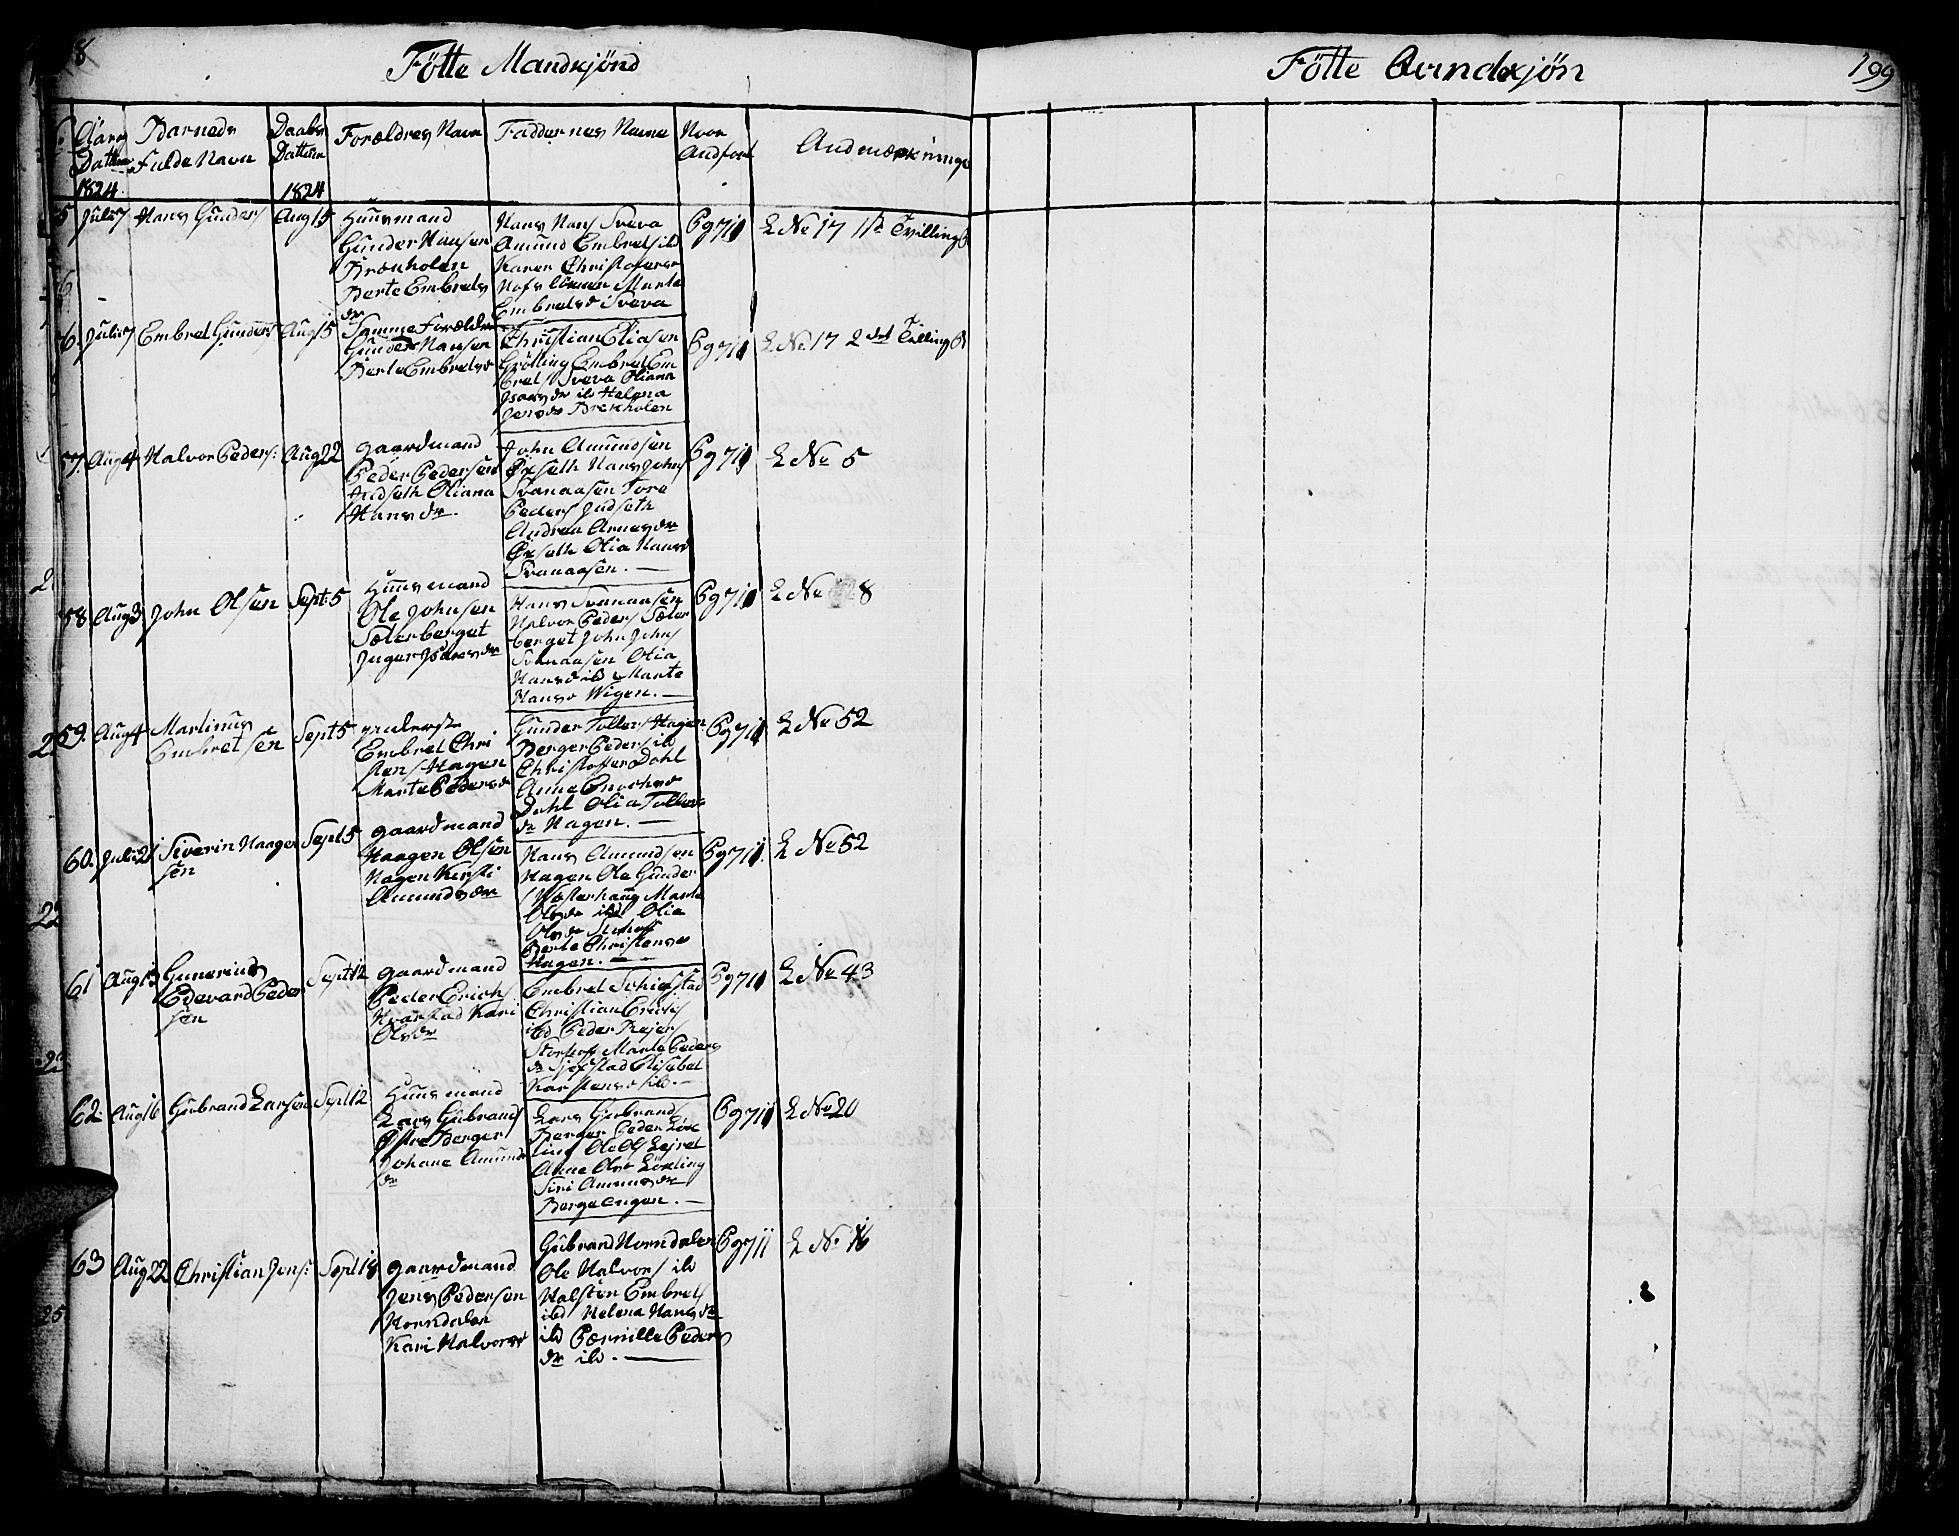 8
Fötte Mandkjönd
Aars
Datten
1824
Barneds
Fulde Navn
Daabs
Datten
1824
Forældres Navn
Faddernes Navne
Hvor
Andført
Andmærkninge
5 Juli 7 Hans Gunders Aug 15
Huusmand
Gunder Hansen
Brækholen
Berte Embrets
dr
Hans Hans Sveva
Amund Embrets ibd
Karen Christofers
Embretsd Sveva
Pg 711
L No 17 1ste Tvilling
6 Juli 7 Embret Gunders Aug 15
Samme Forældre
Gunder Hansen
Berte Embretsd
Christian Eliasen
Grötting Embret Em
brets Sveva Oliana
Isaksdr ib Helena
Jensdr Brekholen
Pg 711
L No 17 2det Tvilling
57. Aug 4 Halvor Peders: Aug 22
gaardmand
Peder Pedersen
Indseth Oliana
Hansdr.
John Amundsen
Öxseth Hans Johns
Svanaasen Tore
Peders Indseth
Andrea Arnesdr
Öxseth Olia Hansd
Svanaasen.
Pg 711
L No 5
58 Aug 3 John Olsen Sept 5
Huusmand
Ole Johnsen
Sæterberget
Inger Isaksdr
Hans Svanaasen
Halvor Peders Sæter
berget John Johns
Svanaasen Olia
Hansd ibd Marte
Hansd Wigen.
Pg 711
L No 8
59. Aug 4 Martinus
Embretsen
Sept 5
Embret Chri
stens Hagen
Marte Pedersd
Gunder Tollefs Hagen
Berger Peders ib
Christoffer Dahl
Anne Enochsd
Dahl Olia Tollefs
dr Hagen.
Pg 711
L No 52
60. Juli 21 Siverin Haagen
sen
Sept 5
gaardmand
Haagen Olsen
Hagen Kersti
Amundsdr
Hans Amundsen
Hagen Ole Gunder
s Westerhaug Marte
Olsdr ibd Olia
Olsdr Storhof
Berte Christensd
Hagen.
Pg 711.
L No 52
61 Aug 13 Gunerius
Edevard Peder
sen
Sept 12
gaardmand
Peder Erichs
Kvarstad Kari
Olsdr
Embret Schiefstad
Christian Erichs
ibd Peder Rejers
Storhof Marte Peders
dr Sjefstad Elisabet
Karstensd ib.
Pg 711
L No 43
62. Aug 16 Gubrand Larsen Sept 12
Huusmand
Lars Gubrands
Östre Berger
Johane Amunds
dr
Lars Gubrands
Berger Peder Löx
ling Ole Ols Lejret
Anne Olsd Löxling
Siri Amundsdr
Bergeengen.
Pg 711
L No 20
63 Aug 22 Christian Jens: Sept 18
gaardmand
Jens Pedersen
Horndalen
Kari Halvorsd
Gubrand Horndalen
Ole Halvors ib
Halsten Embrets
ibd Helena Hansdr
ib Pernille Peders
dr ib.
Pg 711
L No 16
Fötte Qvindekjön
199